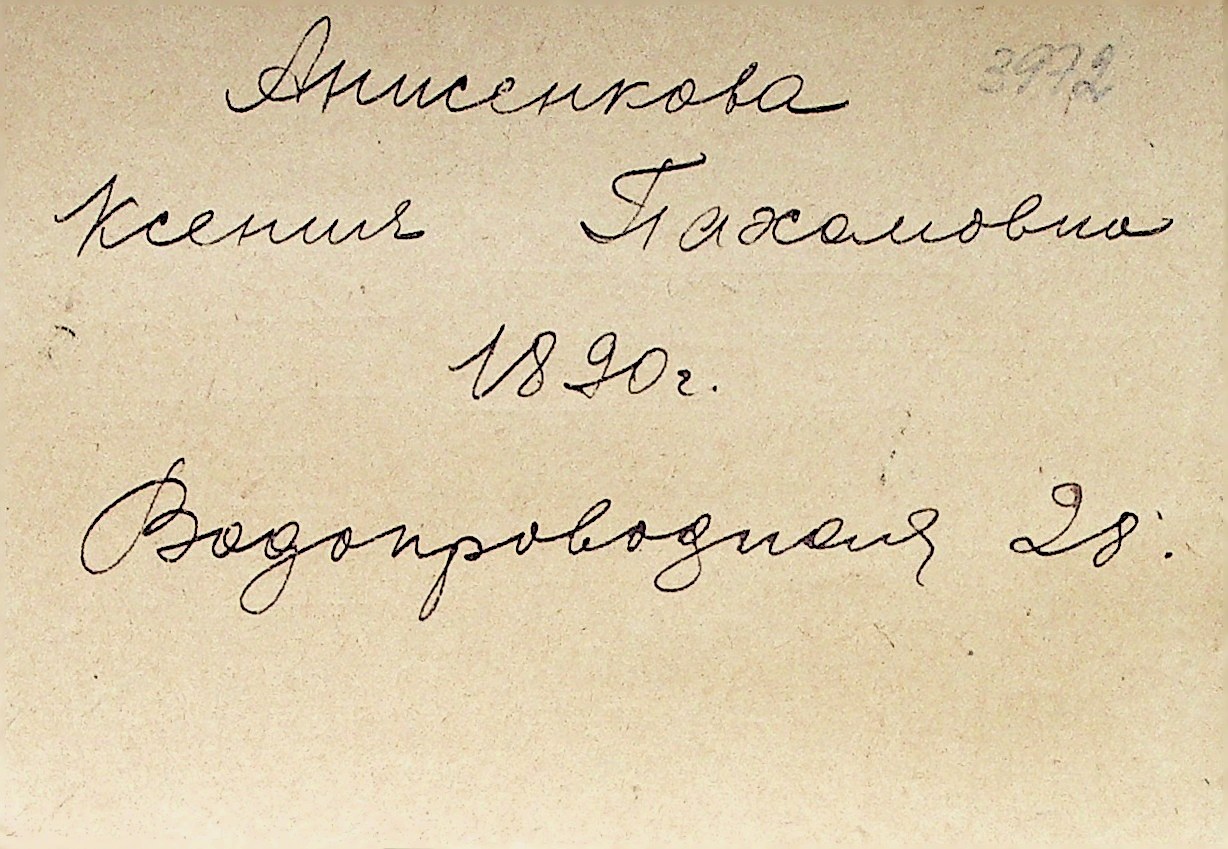 Анисенкова 3972
Ксения Пахамовна
1890г.
Водопроводная 28.